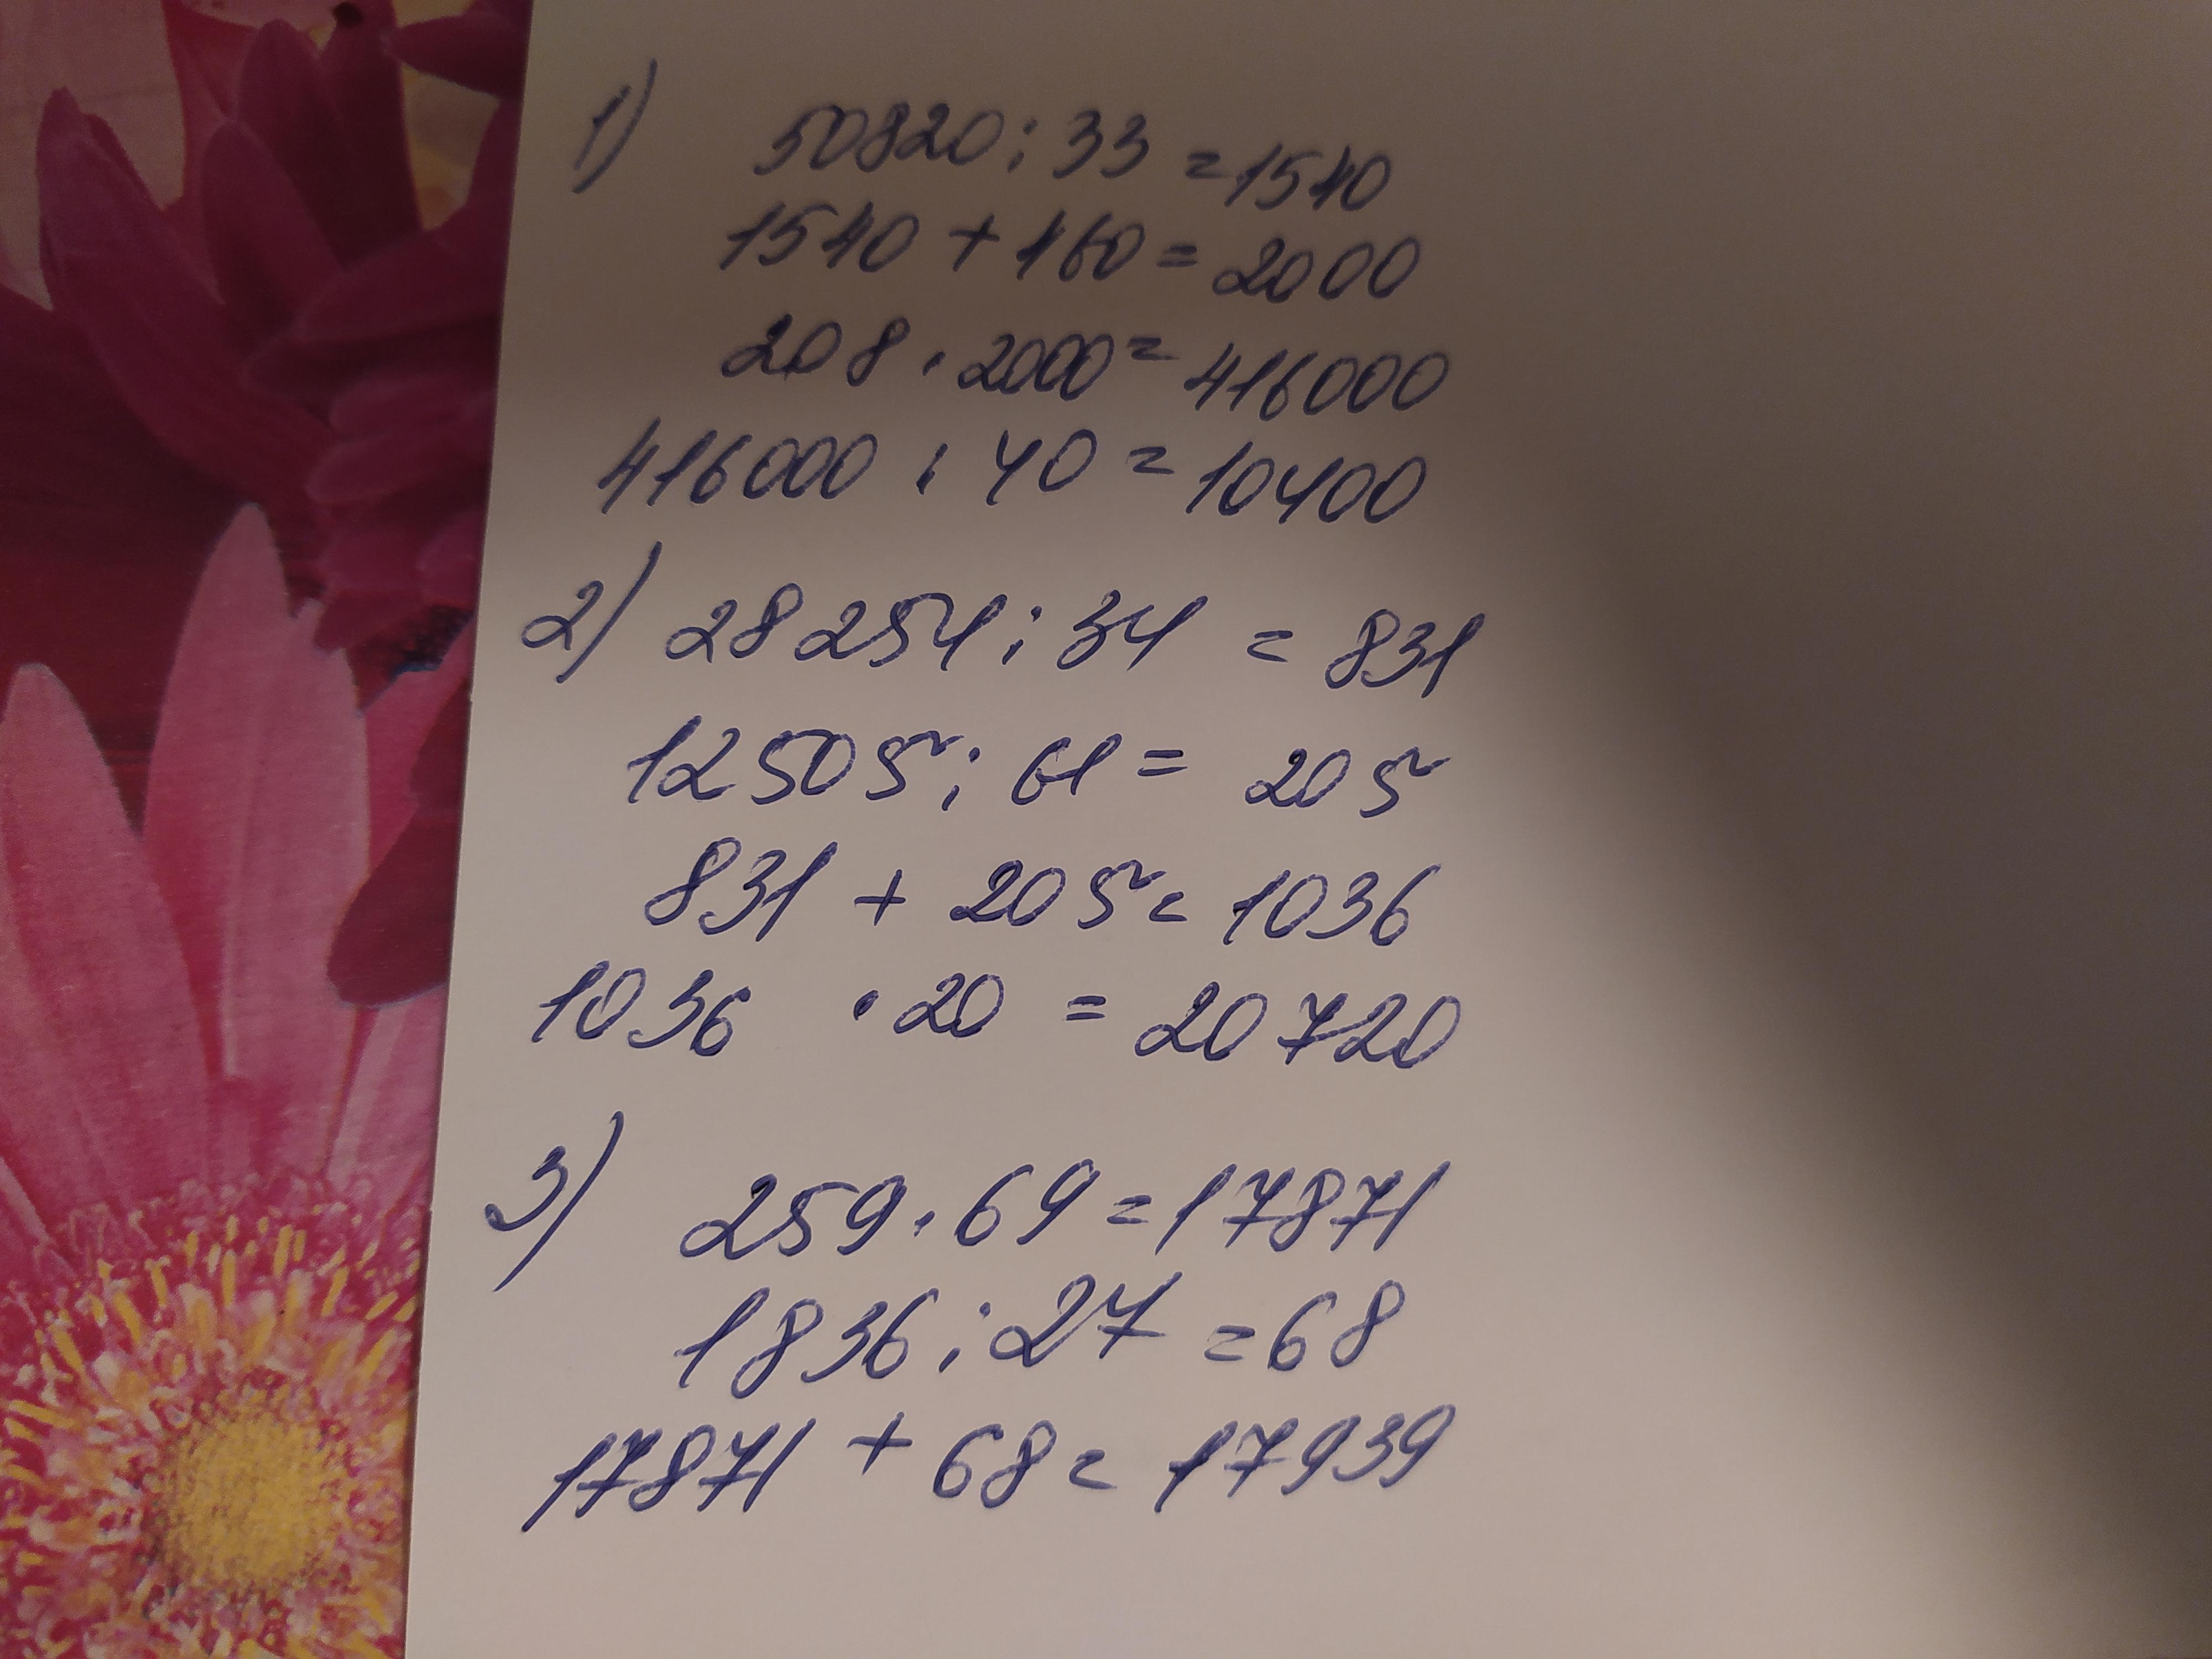 1) 50820 : 33 = 1540
1540 + 460 = 2000
208 · 2000 = 416000
416000 : 40 = 10400
2) 28254 : 34 = 831
12505 : 61 = 205
831 + 205 = 1036
1036 · 20 = 20720
3) 259 · 69 = 17871
1836 : 27 = 68
17871 + 68 = 17939